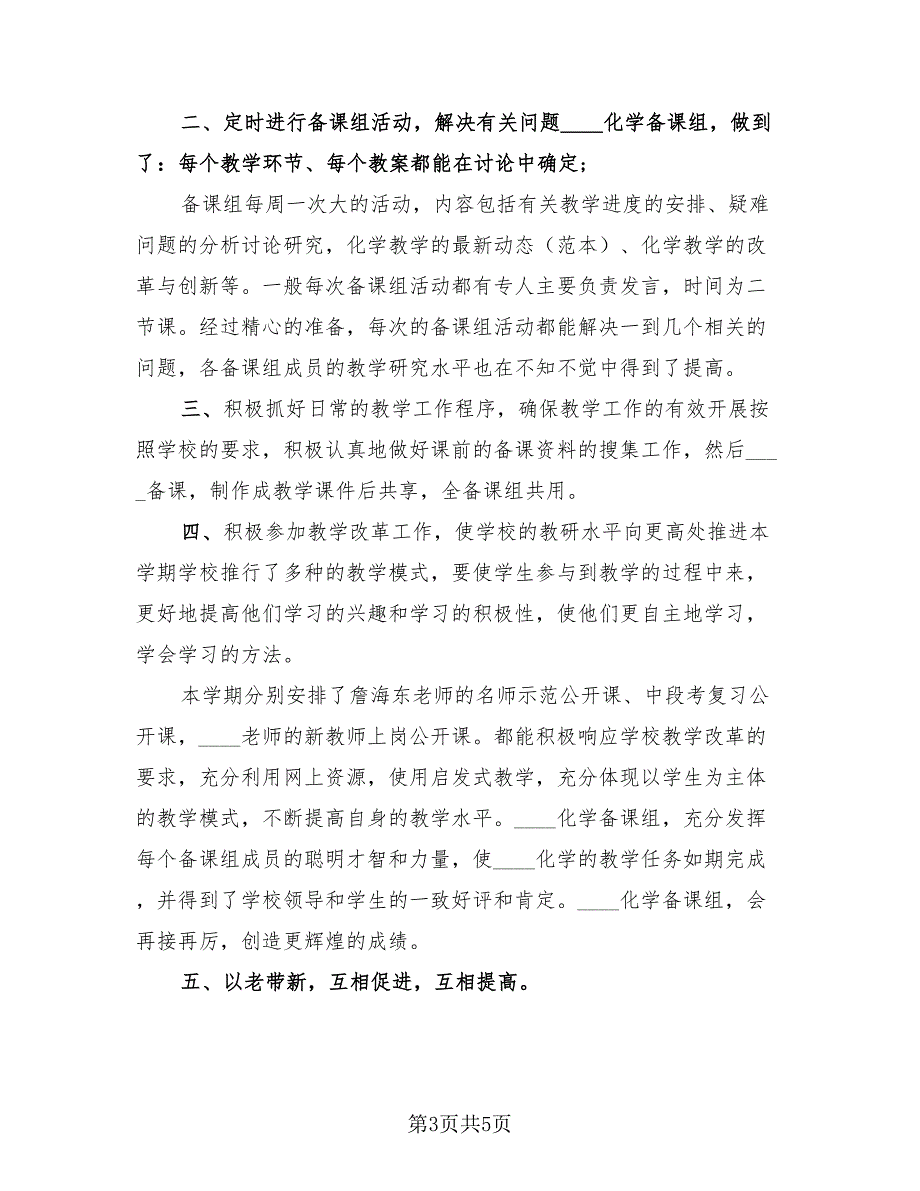 二、定时进行备课组活动，解决有关问题____化学备课组，做到
了：每个教学环节、每个教案都能在讨论中确定；
备课组每周一次大的活动，内容包括有关教学进度的安排、疑难
问题的分析讨论研究，化学教学的最新动态（范本）、化学教学的改
革与创新等。一般每次备课组活动都有专人主要负责发言，时间为二
节课。经过精心的准备，每次的备课组活动都能解决一到几个相关的
问题，各备课组成员的教学研究水平也在不知不觉中得到了提高。
三、积极抓好日常的教学工作程序，确保教学工作的有效开展按
照学校的要求，积极认真地做好课前的备课资料的搜集工作，然后___
_备课，制作成教学课件后共享，全备课组共用。
四、积极参加教学改革工作，使学校的教研水平向更高处推进本
学期学校推行了多种的教学模式，要使学生参与到教学的过程中来，
更好地提高他们学习的兴趣和学习的积极性，使他们更自主地学习，
学会学习的方法。
本学期分别安排了詹海东老师的名师示范公开课、中段考复习公
开课，____老师的新教师上岗公开课。都能积极响应学校教学改革的
要求，充分利用网上资源，使用启发式教学，充分体现以学生为主体
的教学模式，不断提高自身的教学水平。____化学备课组，充分发挥
每个备课组成员的聪明才智和力量，使____化学的教学任务如期完成
，并得到了学校领导和学生的一致好评和肯定。____化学备课组，会
再接再厉，创造更辉煌的成绩。
五、以老带新，互相促进，互相提高。
第3页共5页